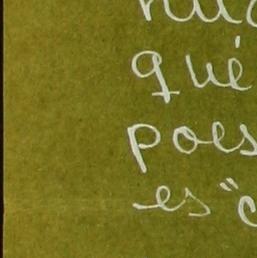 qué
poes
es "c